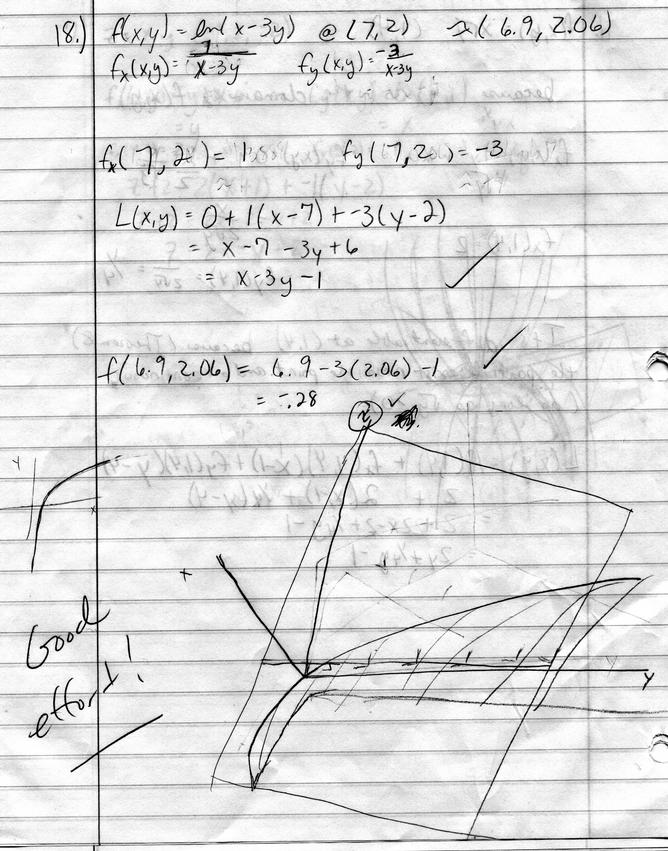 18.) f(x,y) = ln(x-3y) @ (7,2) ≈(6.9, 2.06)
fx(x,y) = 1/x-3y fy(x,y) = -3/x-3y
fx(7,2) = 1 fy(7,2) = -3
L(x,y) = 0 + 1(x-7) + -3(y-2)
= x - 7 - 3y + 6
= x - 3y - 1 ✓
f(6.9, 2.06) = 6.9 - 3(2.06) - 1 ✓
= -.28 ✓
y
x
x
y
Good
effort!